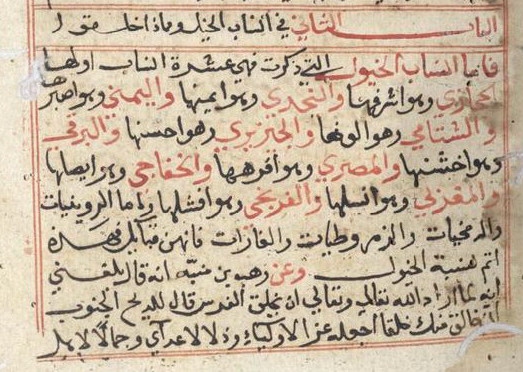 الباب الثاني في انساب الخيل وماذا خلق
فاما انساب الخيول التي ذكرت فهي عشرة انساب اولها
الحجازي وهو اشرفها والنجدي وهو ايمنها واليمني وهو اصبر
والشامي وهو والجزيري وهو احسنها والبرقي
وهو اخشنها والمصري وهو افرهها والخفاجي وهو اصلبها
والمغربي وهو انسلها والفرنجي وهو افشلها واما
فانهن قبائل فهذه
اتم نسبة الخيول وعن وهب بن منبه انه قال بلغني
انه لما اراد الله تعالى ان يخلق الفرس قال للريح الجنوب
اني خالق منك خلقا اجعله عزا لاوليائي وذلا لاعدائي وجمالا لاهل